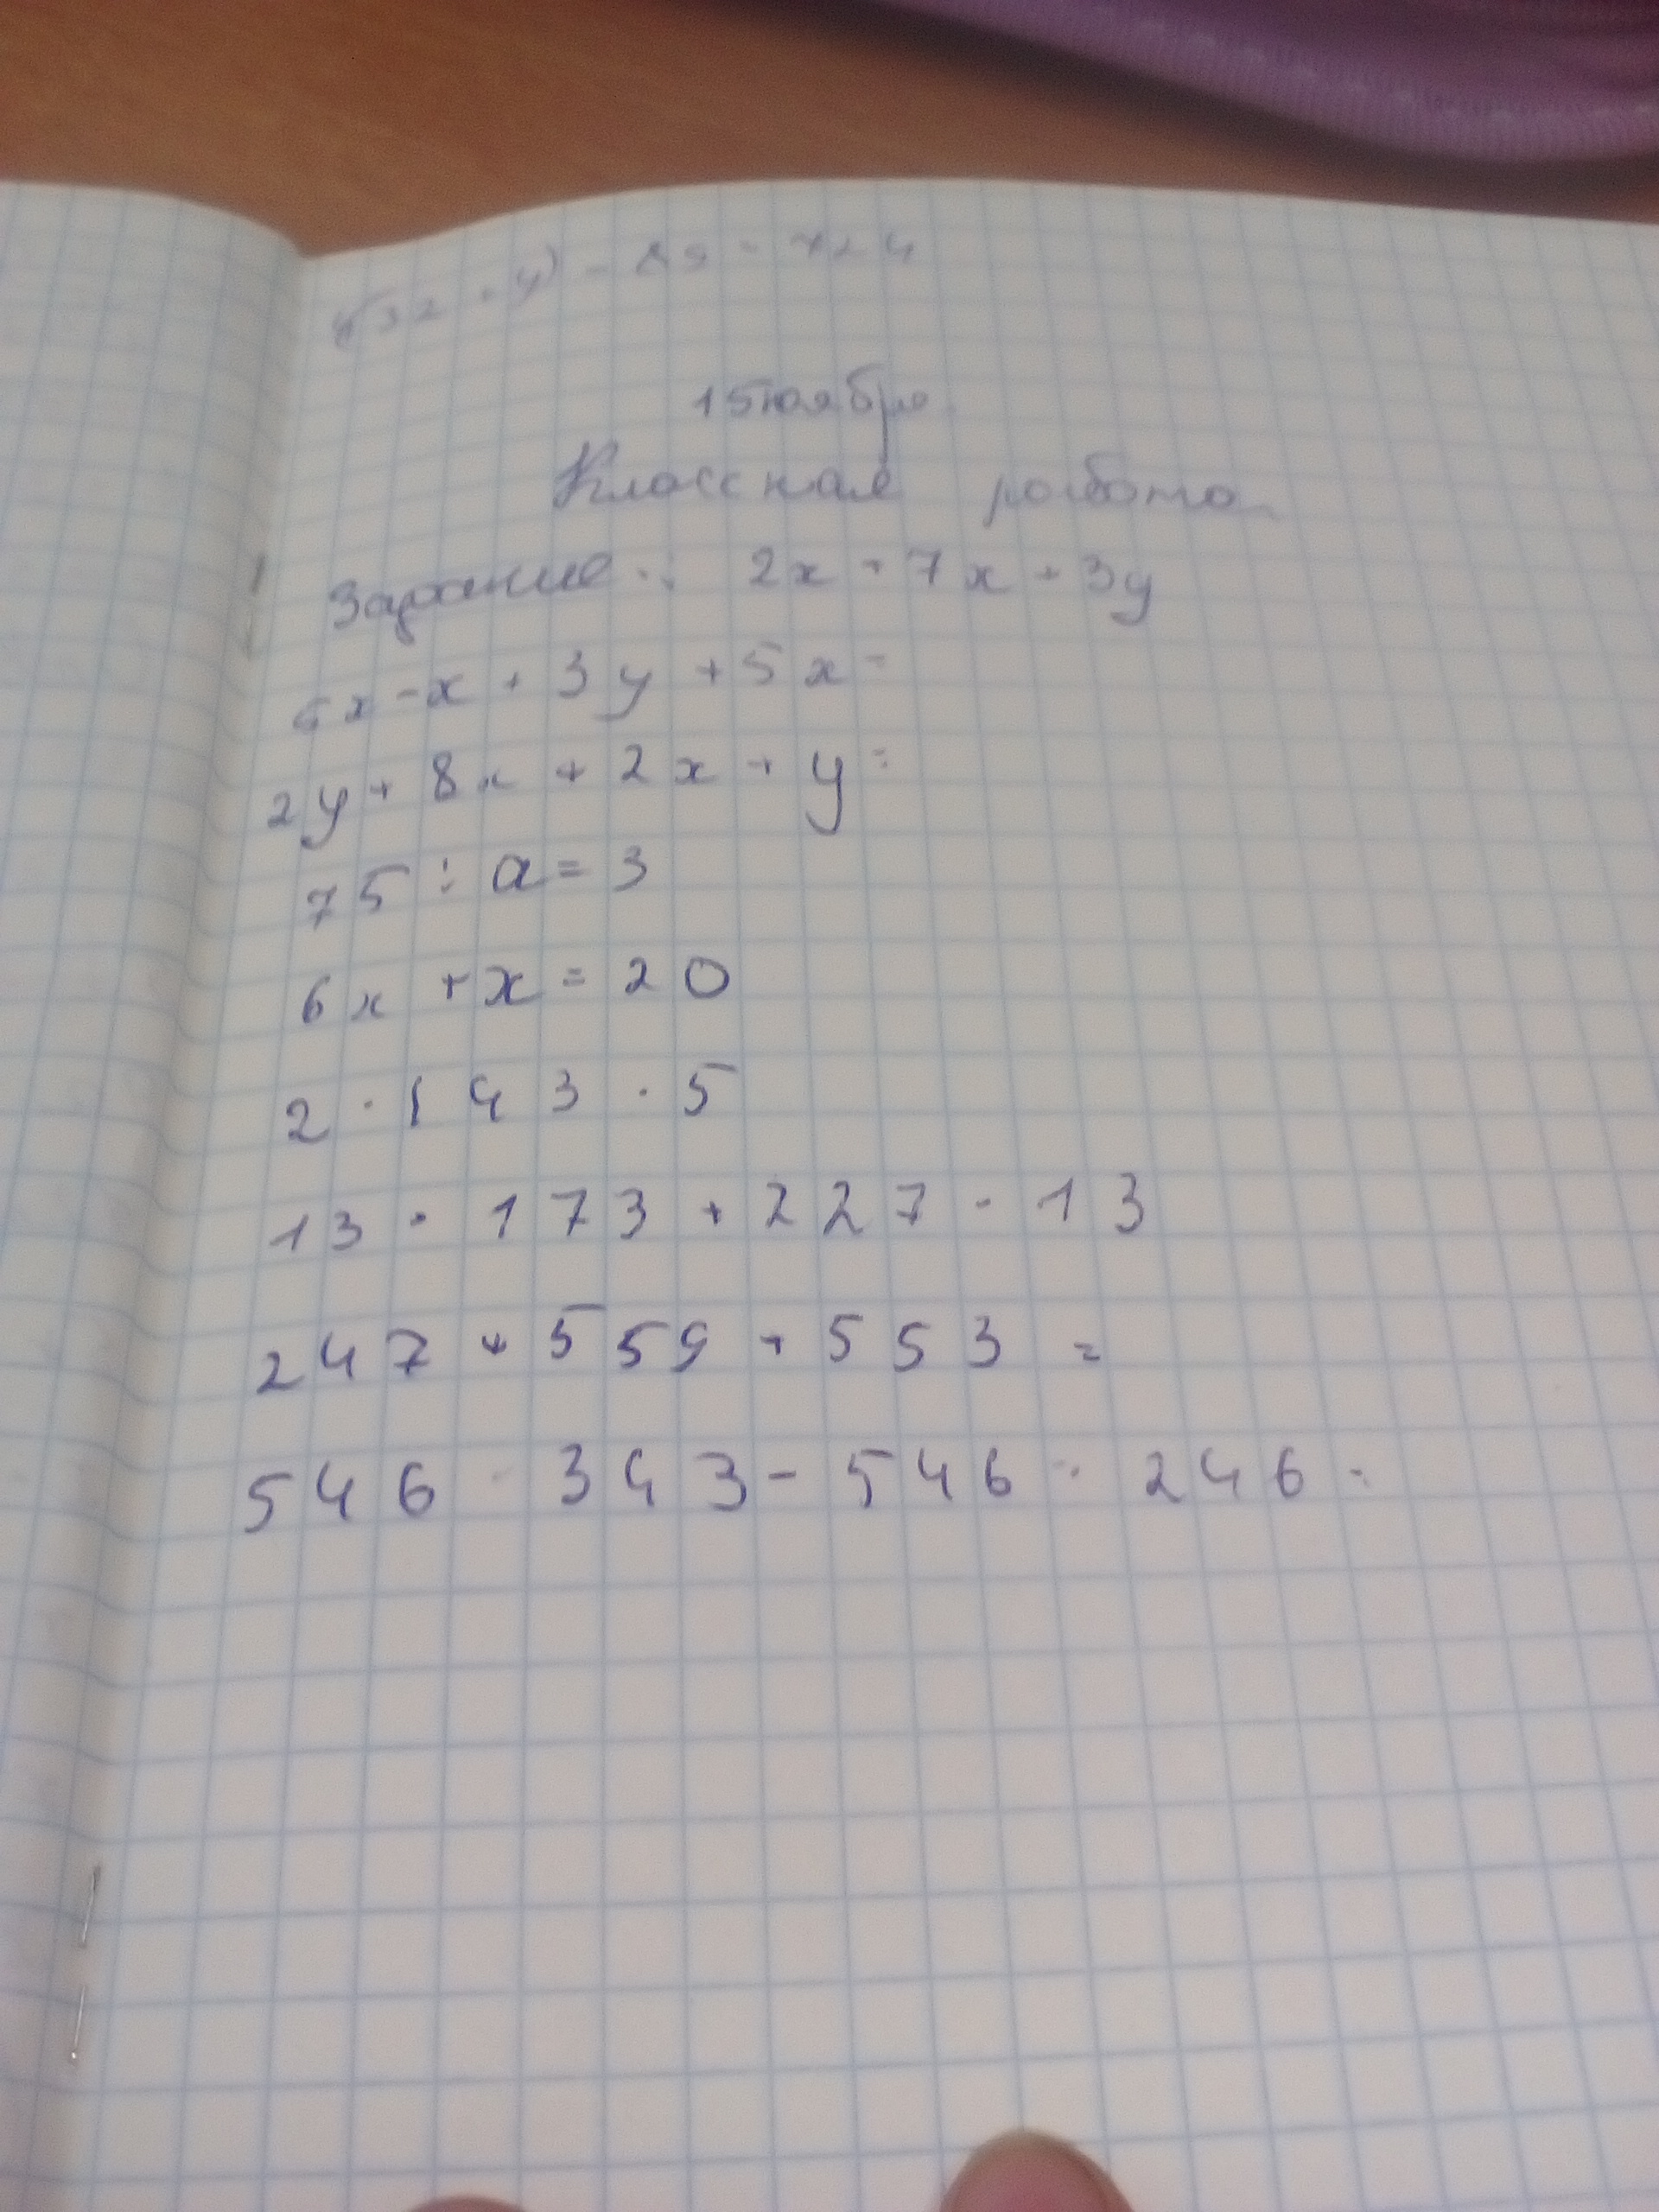 - 89 = 724
15 ноября
Классная работа
Задание : 2x + 7x + 3y
x - x + 3y + 5x =
2y + 8x + 2x + y =
75 : a = 3
6x + x = 20
2 · 143 · 5
13 · 173 + 227 · 13
247 + 559 + 553 =
546 · 343 - 546 · 246 =